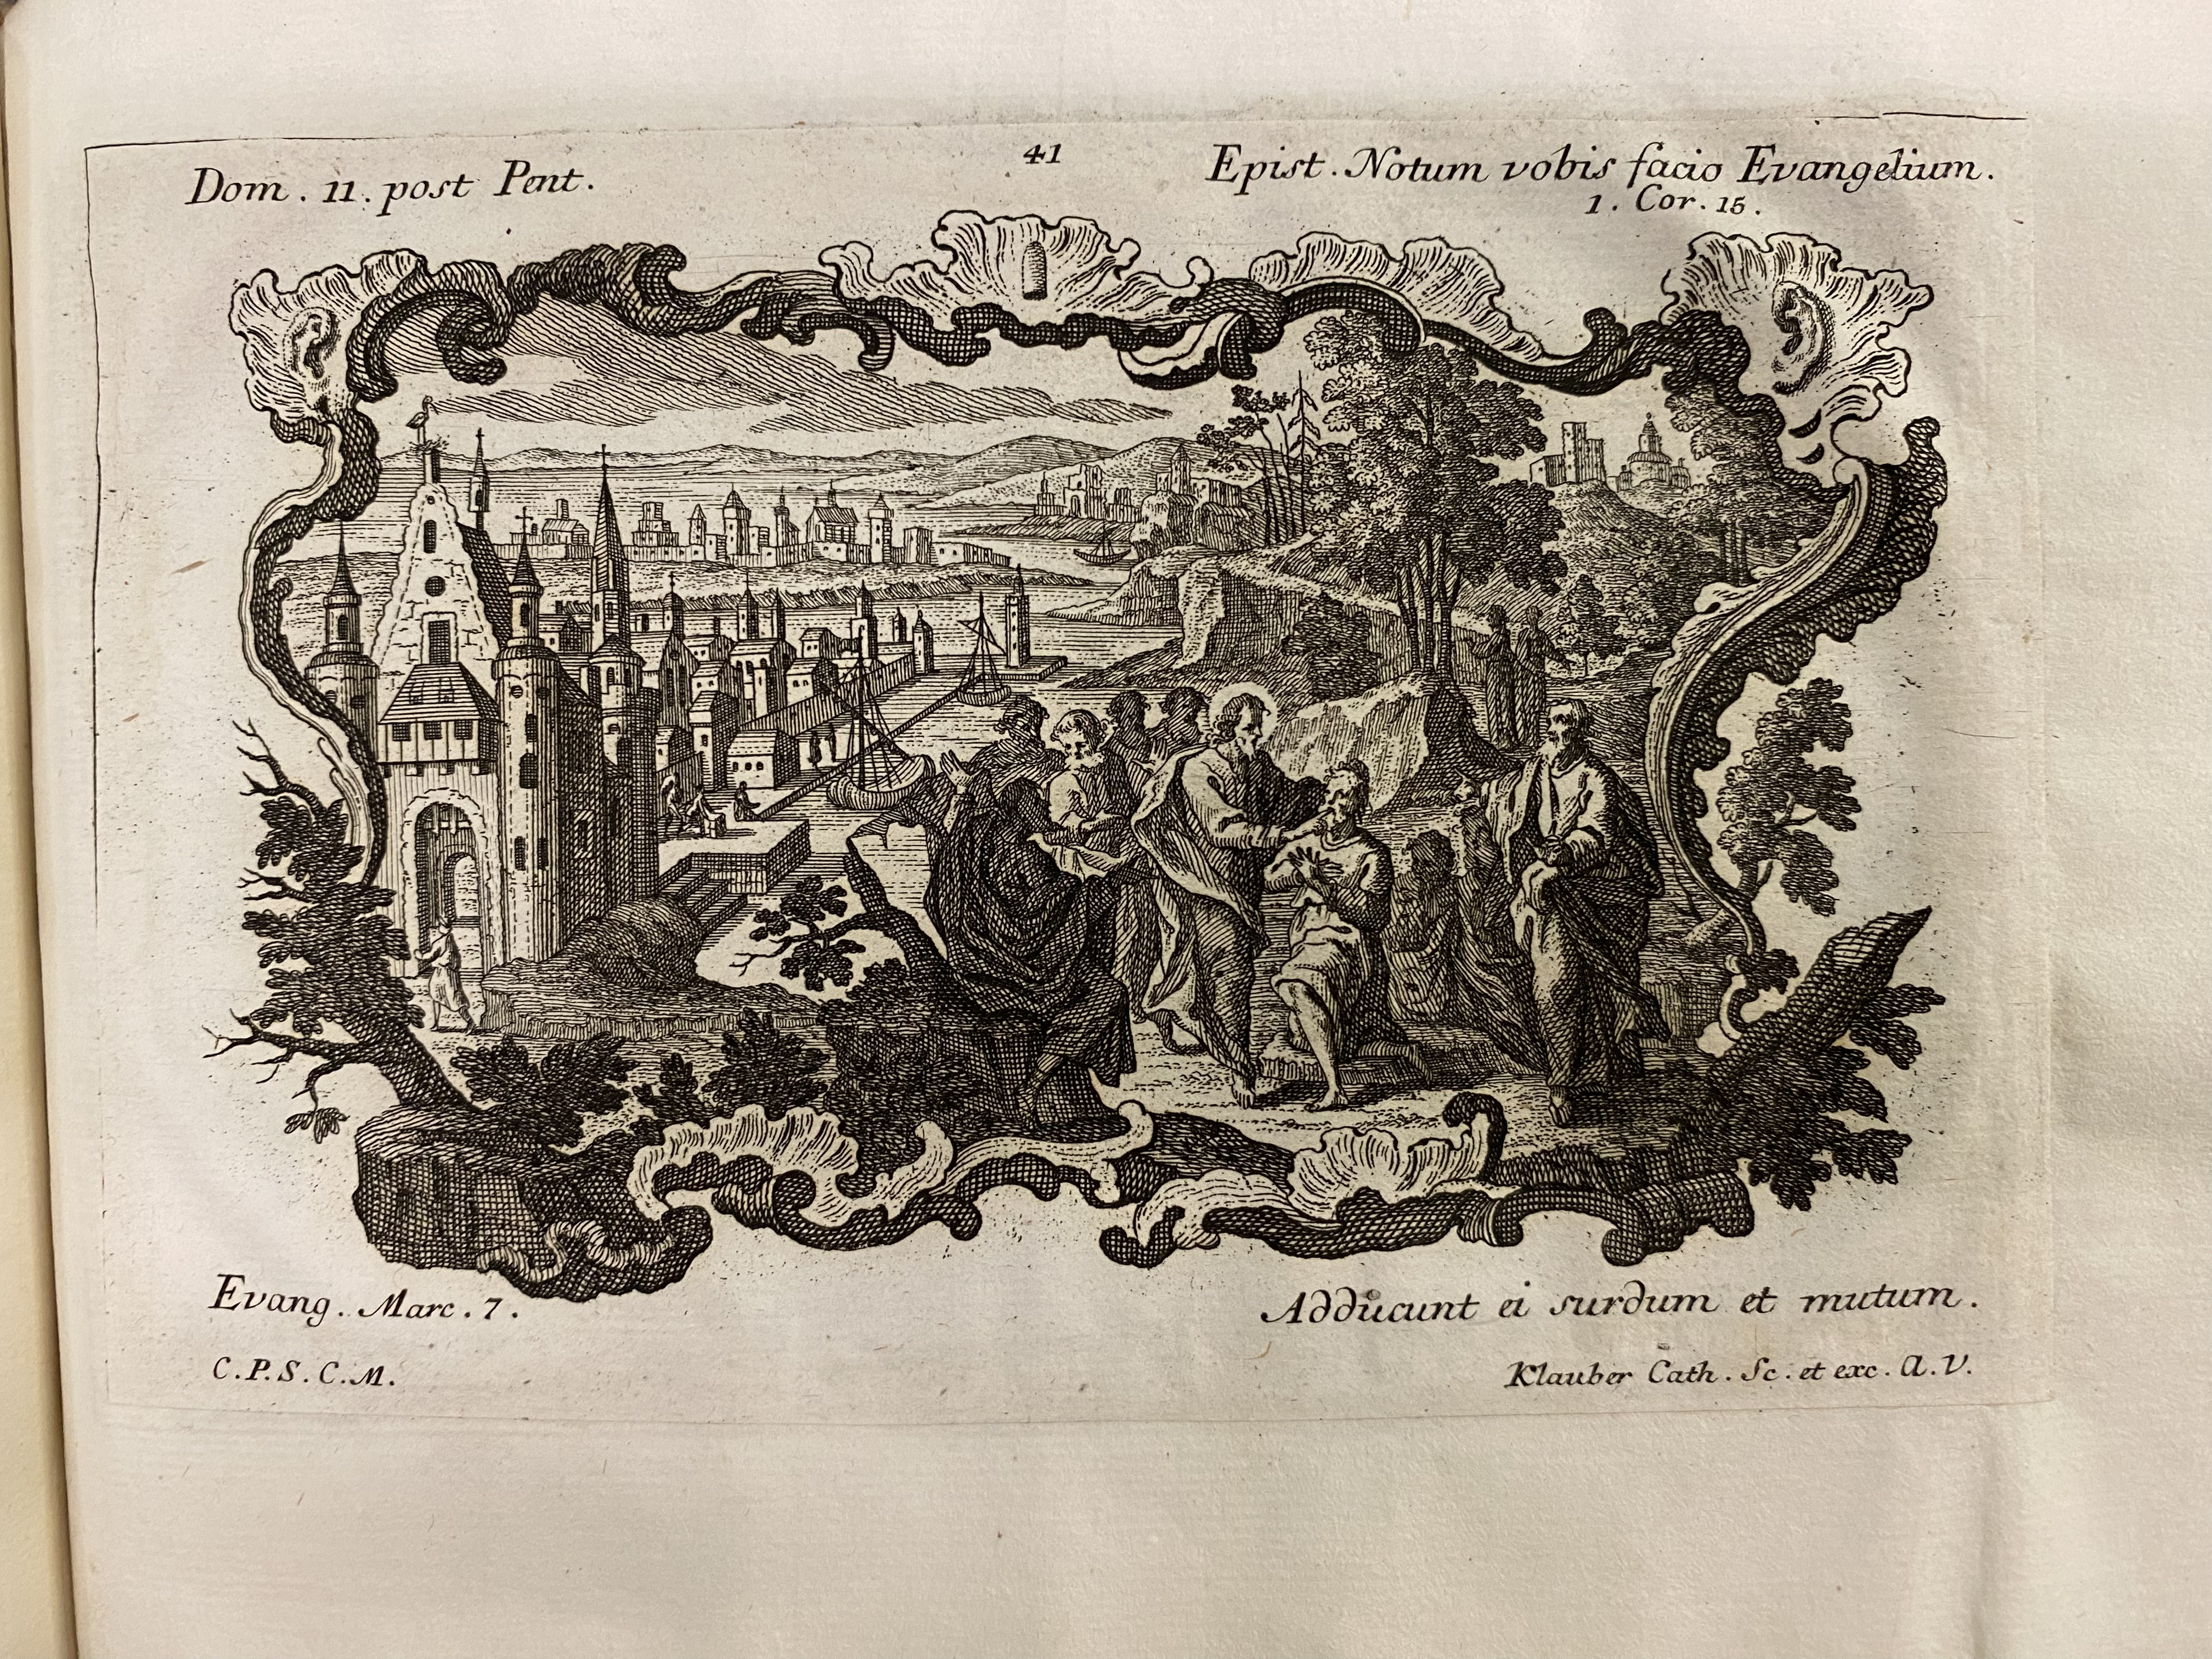 Dom. 11. post Pent.
41
Epist. Notum vobis facio Evangelium.
1. Cor. 15.
Evang. Marc. 7.
Adducunt ei surdum et mutum.
C.P.S.C.M.
Klauber Cath. Sc. et exc. A.V.